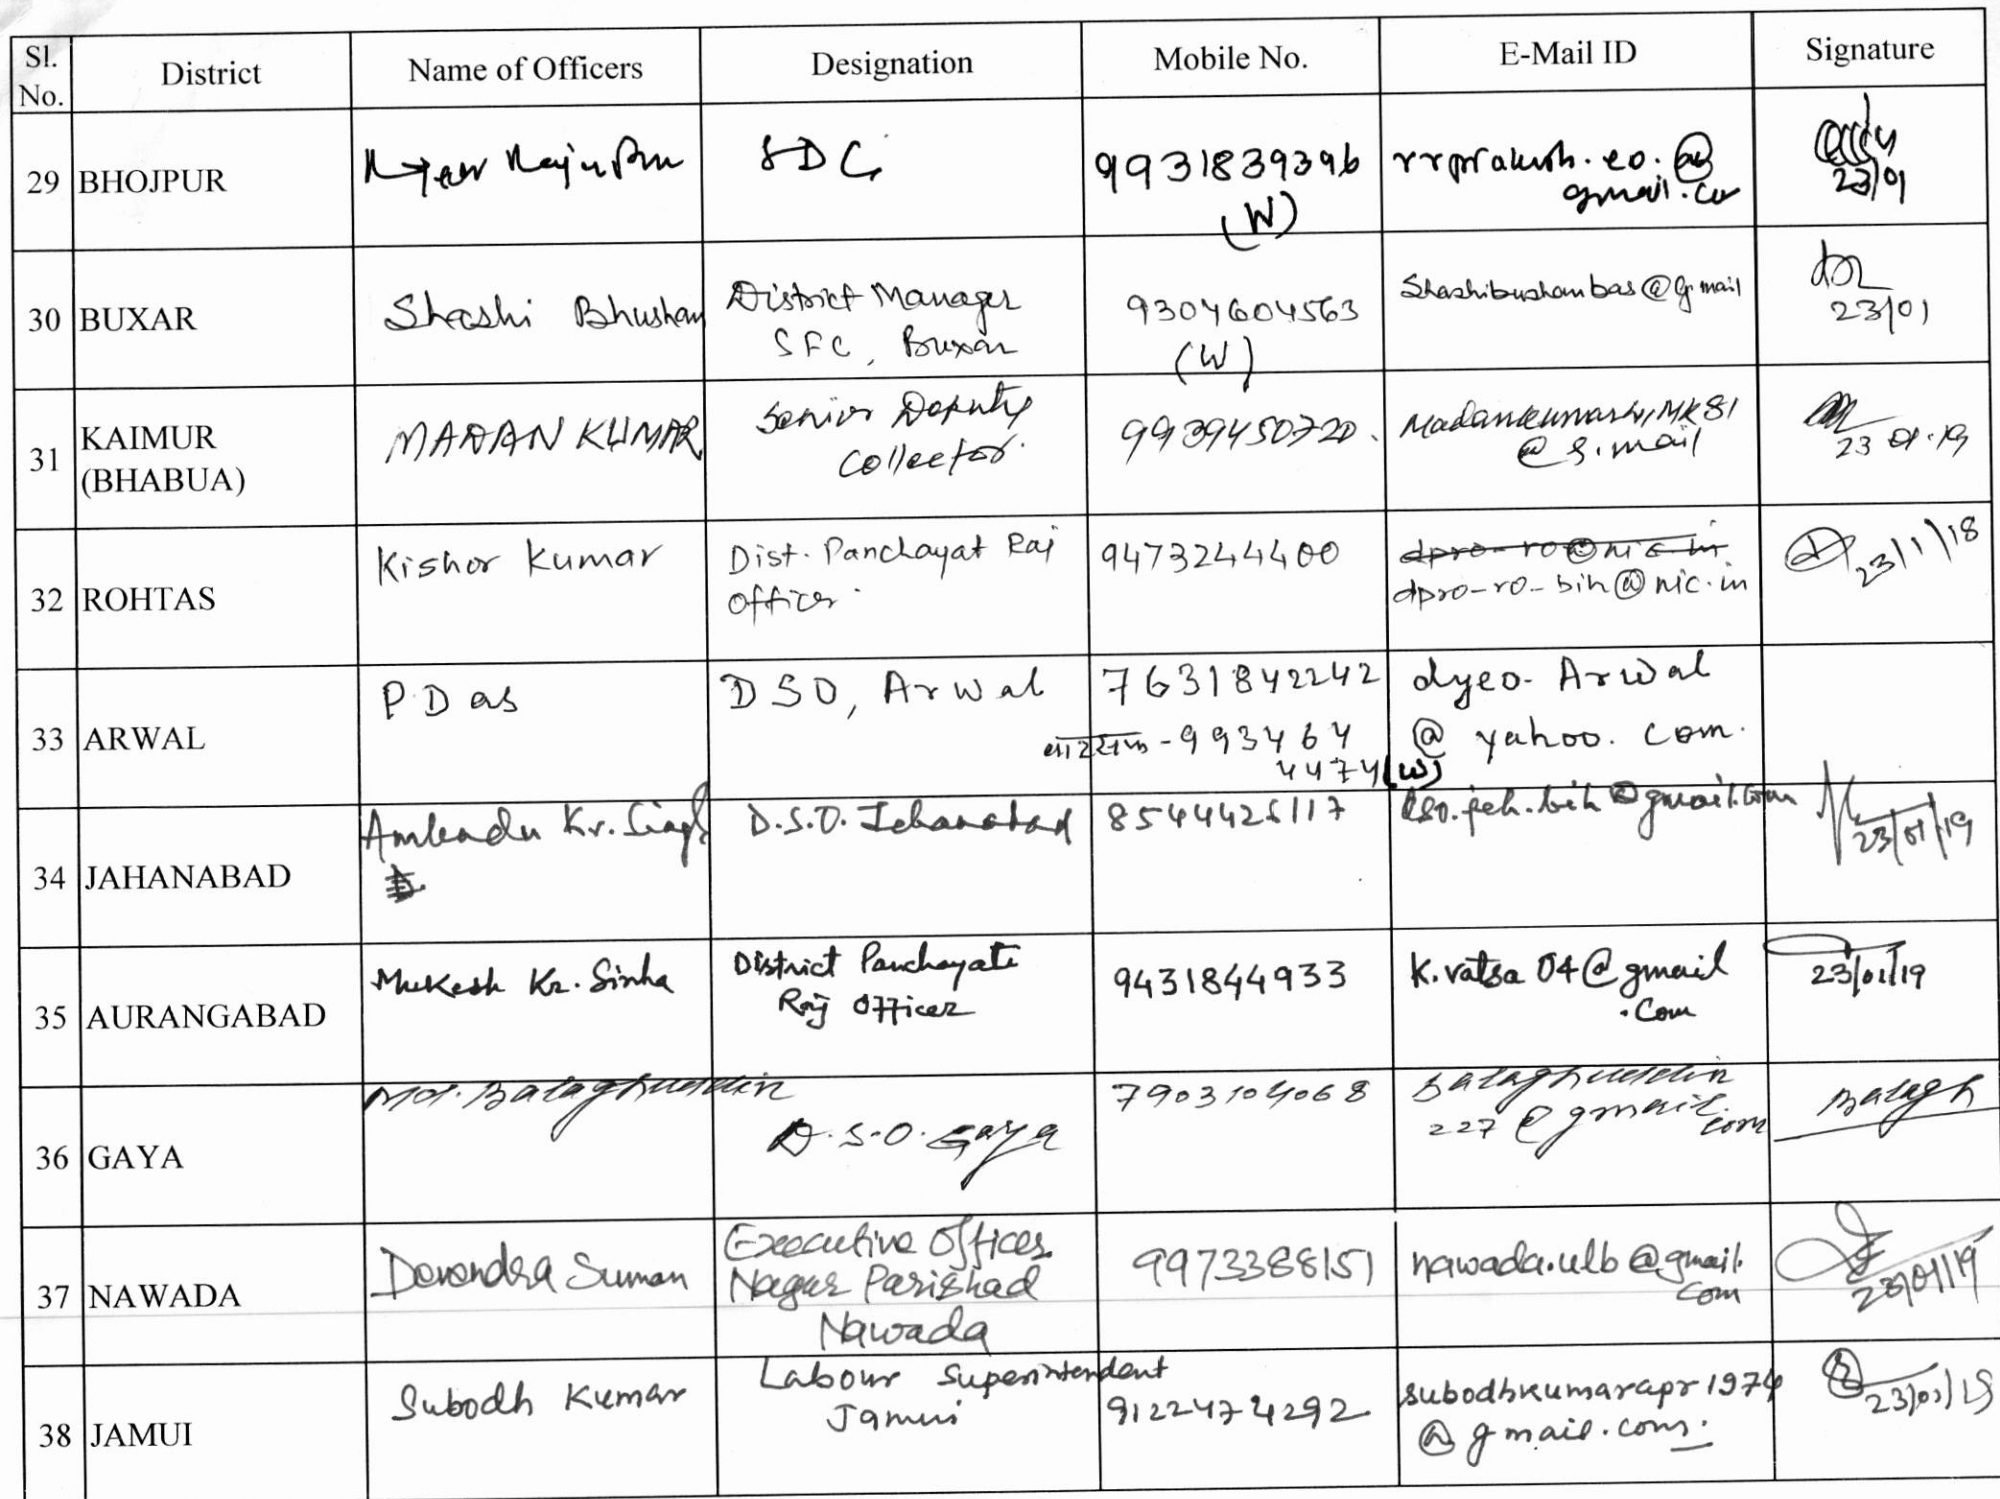 Sl. No. District Name of Officers Designation Mobile No. E-Mail ID Signature
29 BHOJPUR SDC 9931839396 (W) rrprakash.eo.@gmail.co 23/01
30 BUXAR Shashi Bhushan District Manager SFC, Buxar 9304604563 (W) Shashibushanbas@g.mail 23/01
31 KAIMUR (BHABUA) MADAN KUMAR Senior Deputy Collector. 9939450720. @g.mail 23.01.19
32 ROHTAS Kishor Kumar Dist. Panchayat Raj Officer. 9473244400 dpro-ro@nic.in dpro-ro-bih@nic.in 23/1/18
33 ARWAL P Das DSO, Arwal 7631842242 - 9934644474 (W) dyeo.Arwal@yahoo.com.
34 JAHANABAD Kr. Singh D.S.O. Jehanabad 8544426117 dso.jeh.bih@gmail.com 23/01/19
35 AURANGABAD Mukesh Kr. Sinha District Panchayati Raj Officer 9431844933 K.vatsa04@gmail.com 23/01/19
36 GAYA Md. Balaghuddin D.S.O. Gaya 7903104068 balaghuddin227@gmail.com Balagh
37 NAWADA Devendra Suman Executive Officer Nagar Parishad Nawada 9973388151 nawada.ulb@gmail.com 23/01/19
38 JAMUI Subodh Kumar Labour Superintendent Jamui 9122474292 subodhkumarapr1974@gmail.com. 23/01/19